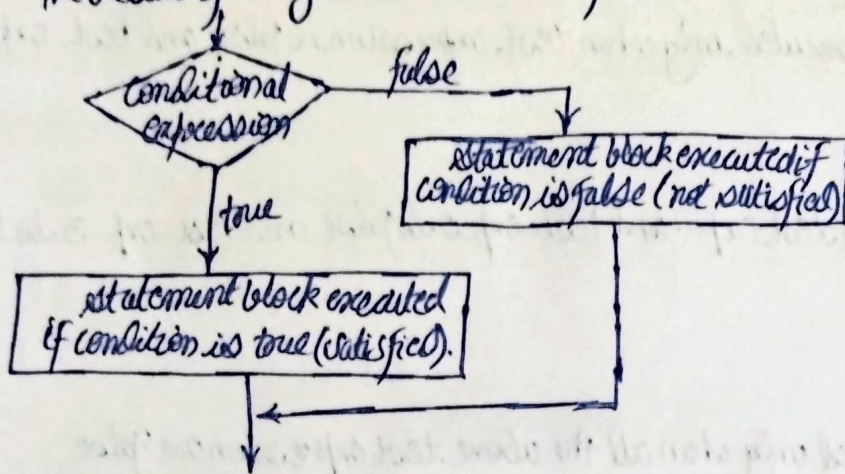 false
conditional
expression
statement block executed if
condition is false (not satisfied)
true
statement block executed
if condition is true (satisfied).